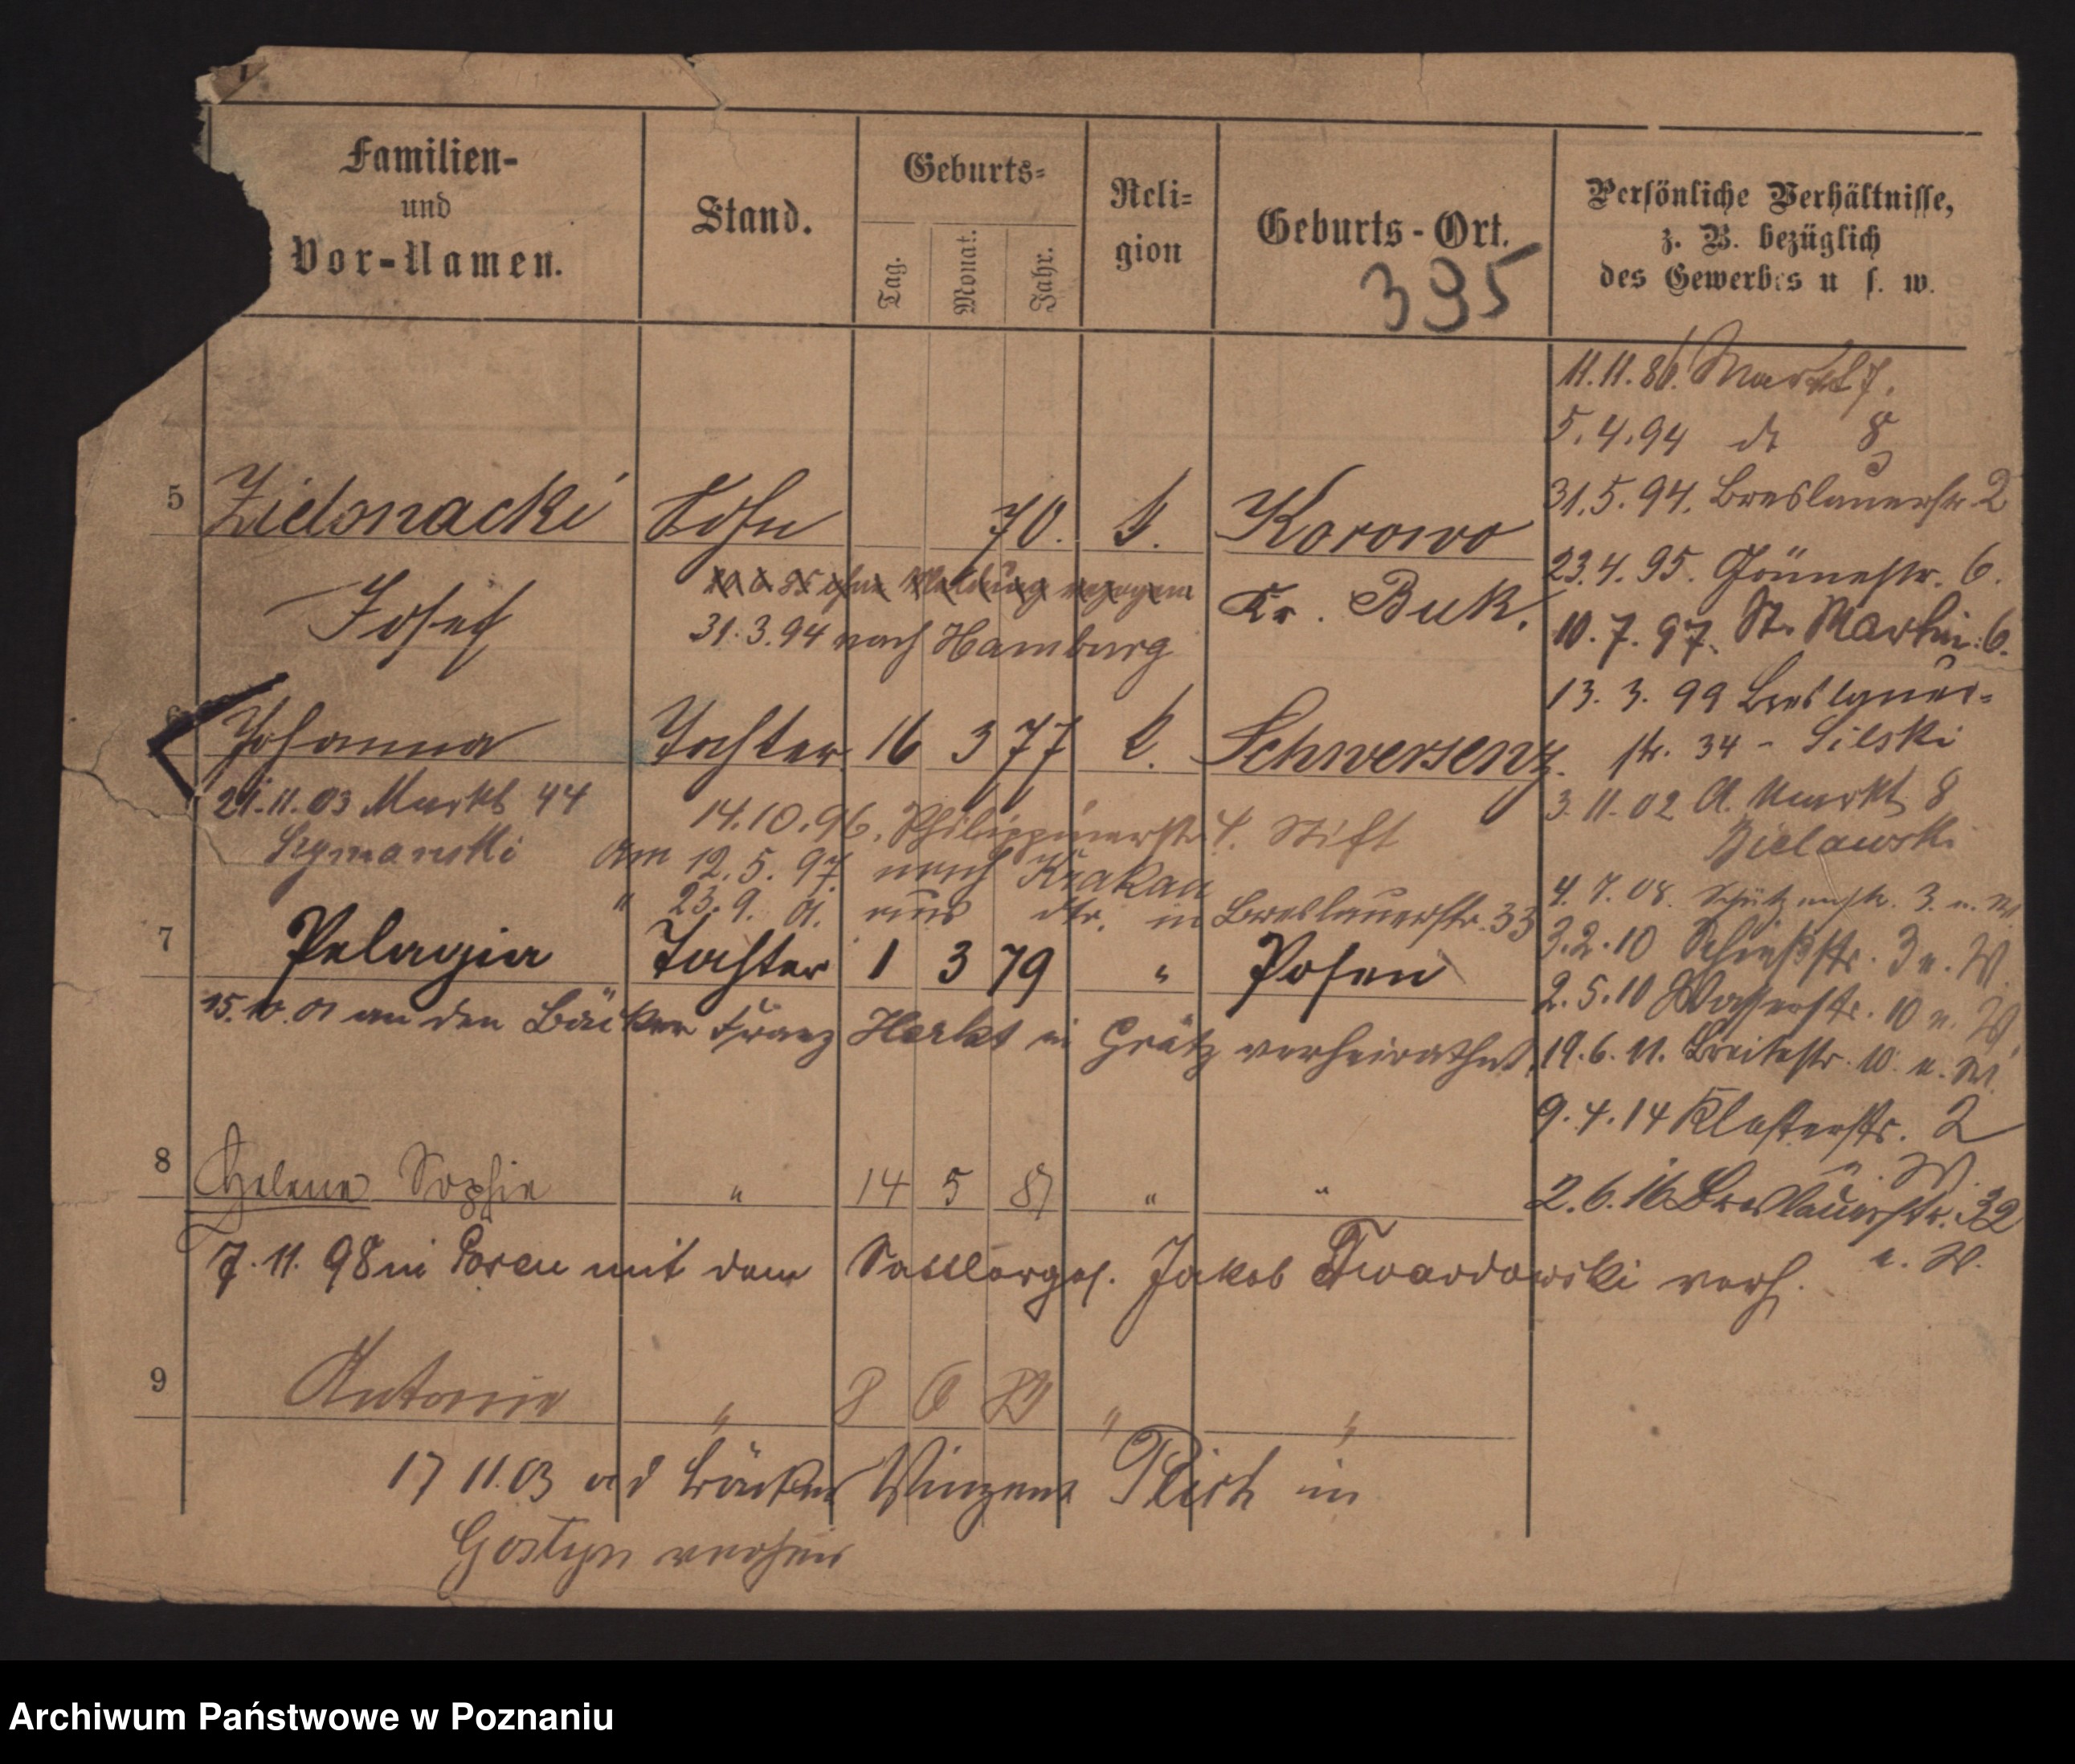 Familien-
und
Vor-Namen.
Stand.
Geburts-
Tag.
Monat.
Jahr.
Reli-
gion
Geburts-Ort.
395
Persönliche Verhältnisse,
z. B. bezüglich
des Gewerbes u s. w.
11.11.86. Markt 7.
5.4.94 do 8
31.5.94. Breslauerstr. 2
23.4.95. Grünestr. 6.
10.7.97. St. Martin 6.
13.3.99 Breslauer-
str. 34 - Silski
3.11.02 A. Markt 8
Bielawski
4.7.08. Schützenstr. 3. u. W
3.2.10 Schießstr. 3 u. W
2.5.10 Wasserstr. 10 u. W
19.6.11. Breitestr. 10. u. W.
9.4.14 Klosterstr. 2
u. W.
2.6.16 Breslauerstr. 32
u. W.
5 Zielonacki Sohn 70. k. Korowo
Josef Kr. Buk.
20 6 85 ohne Meldung verzogen
31.3.94 nach Hamburg
6 Johanna Tochter 16 3 77 k. Schwersenz.
21.11.03 Markt 44
Szymanski
14.10.96. Philippinerstr. 4. Stift
Am 12.5.97. nach Krakau
" 23.9.01. aus dto. in Breslauerstr. 33
7 Pelagia Tochter 1 3 79 " Posen
15.10.01 an den Bäcker Franz Herkt in Grätz verheirathet.
8 Helene Sophie " 14 5 81 " "
7.11.98 in Posen mit dem Sattlerges. Jakob Twardowski verh.
9 Antonie " 8 6 " "
17 11.03 a d Bäcker Winzent in
Gostyn verheir
Archiwum Państwowe w Poznaniu